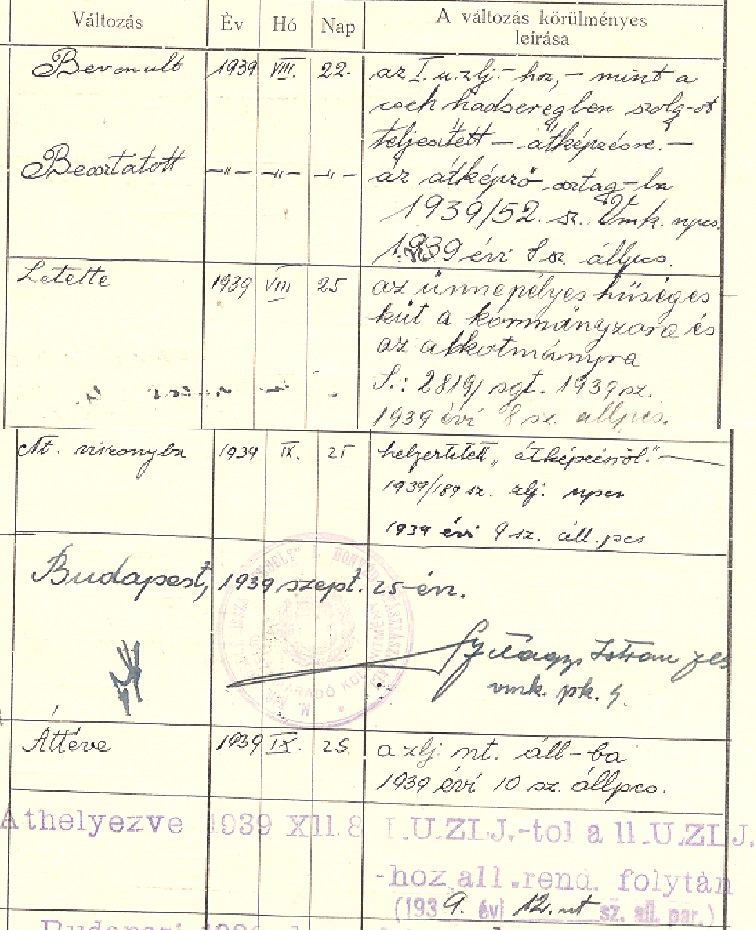 Változás Év Hó Nap A változás körülményes
leírása
Bevonult 1939 VIII. 22. az I. u. zlj.-hoz, – mint a
cseh hadseregben szolg-ot
teljesített – átképzésre. –
Beosztatott –"– –"– –"– az átképző osztag-ba
1939/52. sz. Vmk. npcs.
1939 évi 8 sz. állpcs.
Letette 1939 VIII 25 az ünnepélyes hűséges
küt a kormányzora és
az alkotmányra
S.: 2819/ sgt. 1939 sz.
1939 évi 8 sz. állpcs.
Nt. viszonyba 1939 IX. 25 helyeztetett „átképzésről." –
1939/189 sz. zlj. npcs
1939 évi 9 sz. áll. pcs
Budapest, 1939 szept. 25-én.
István
vmk. pk. h.
Áttéve 1939 IX. 25. a zlj. nt. áll-ba
1939 évi 10 sz. állpcs.
Athelyezve 1939 XII.8 I.U.ZLJ.-tol a II.U.ZLJ.
-hoz áll.rend. folytán
(1939. évi 12. nt sz. áll. par.)